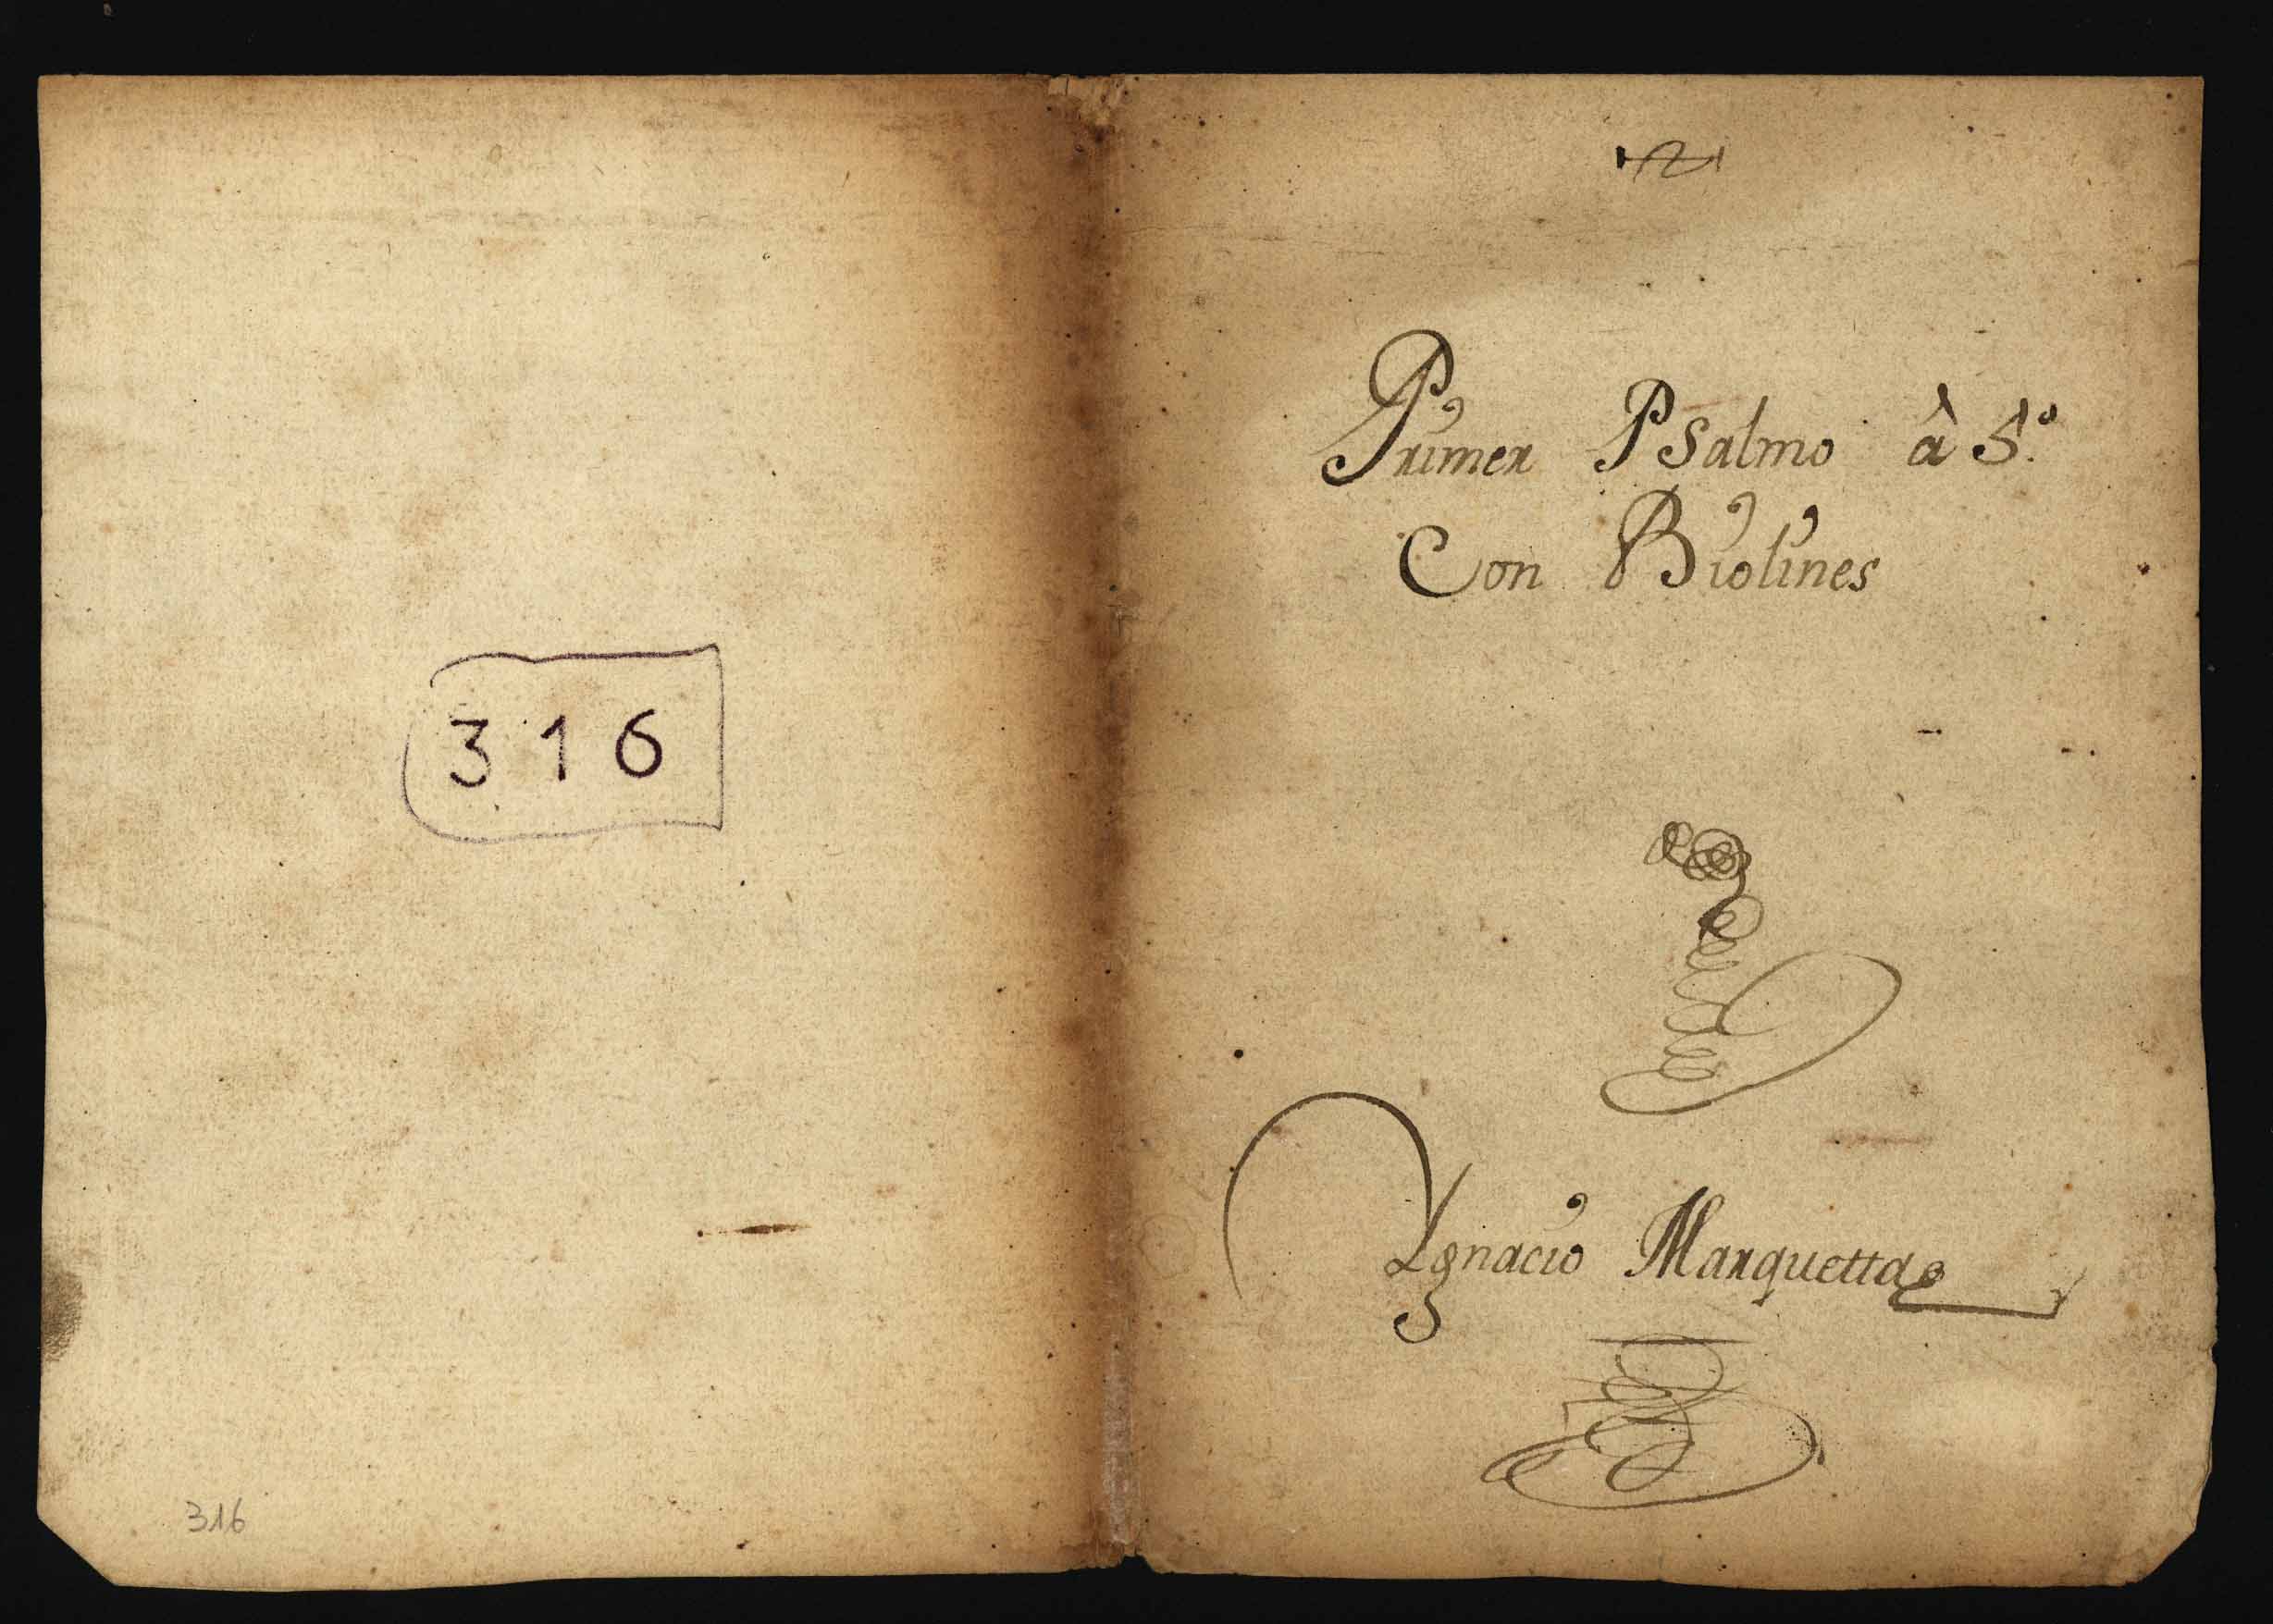 316
316
Primer Psalmo â 5.º
Con Biolines
Ygnacio Marquetta